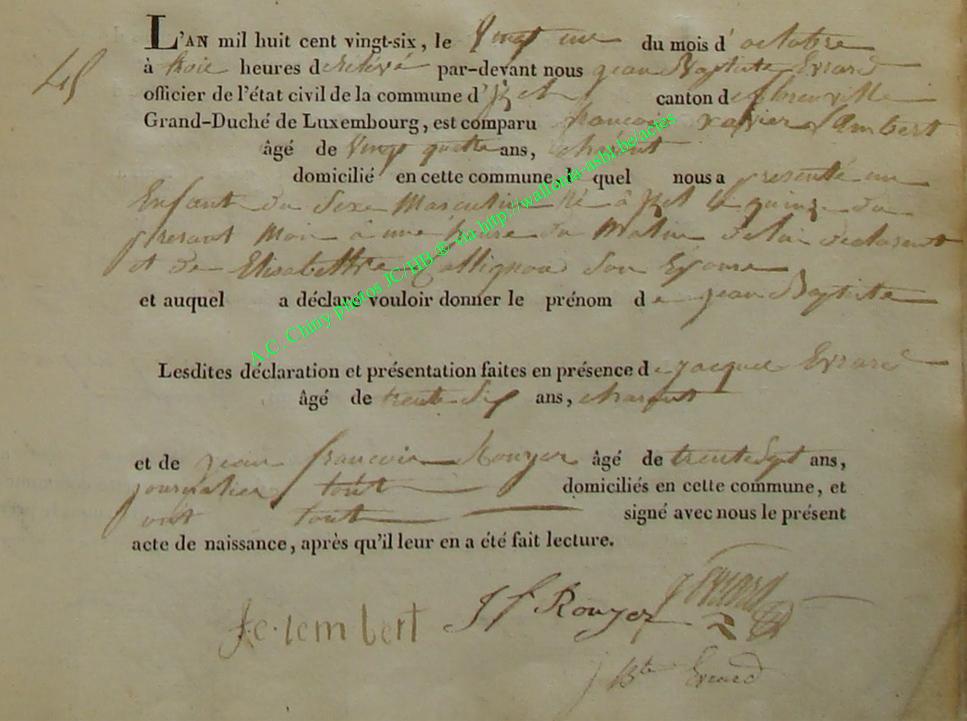 45
L'AN mil huit cent vingt-six, le Vingt un du mois d'octobre
à trois heures de relevé par-devant nous jean Baptiste Evrard
officier de l'état civil de la commune d' Izel canton de florenville
Grand-Duché de Luxembourg, est comparu francois xavier Lambert
âgé de Vingt quatre ans,
domicilié en cette commune, le quel nous a presenté un
Enfant du Sexe Masculin né à Izel le quinze du
present Mois à une heure du Matin de lui declarant
et de Elisabethe Collignon Son Epouse
et auquel a déclaré vouloir donner le prénom de jean Baptiste
Lesdites déclaration et présentation faites en présence de jacque Evrard
âgé de trente Six ans,
et de jean francois Rouyer âgé de trente Sept ans,
journalier tout domiciliés en cette commune, et
ont tout signé avec nous le présent
acte de naissance, après qu'il leur en a été fait lecture.
lembert J f Rouyer j Evrard
j Bte Evrard
A.C. Chiny photos JC/HB ® via http://wallonia-asbl.be/actes